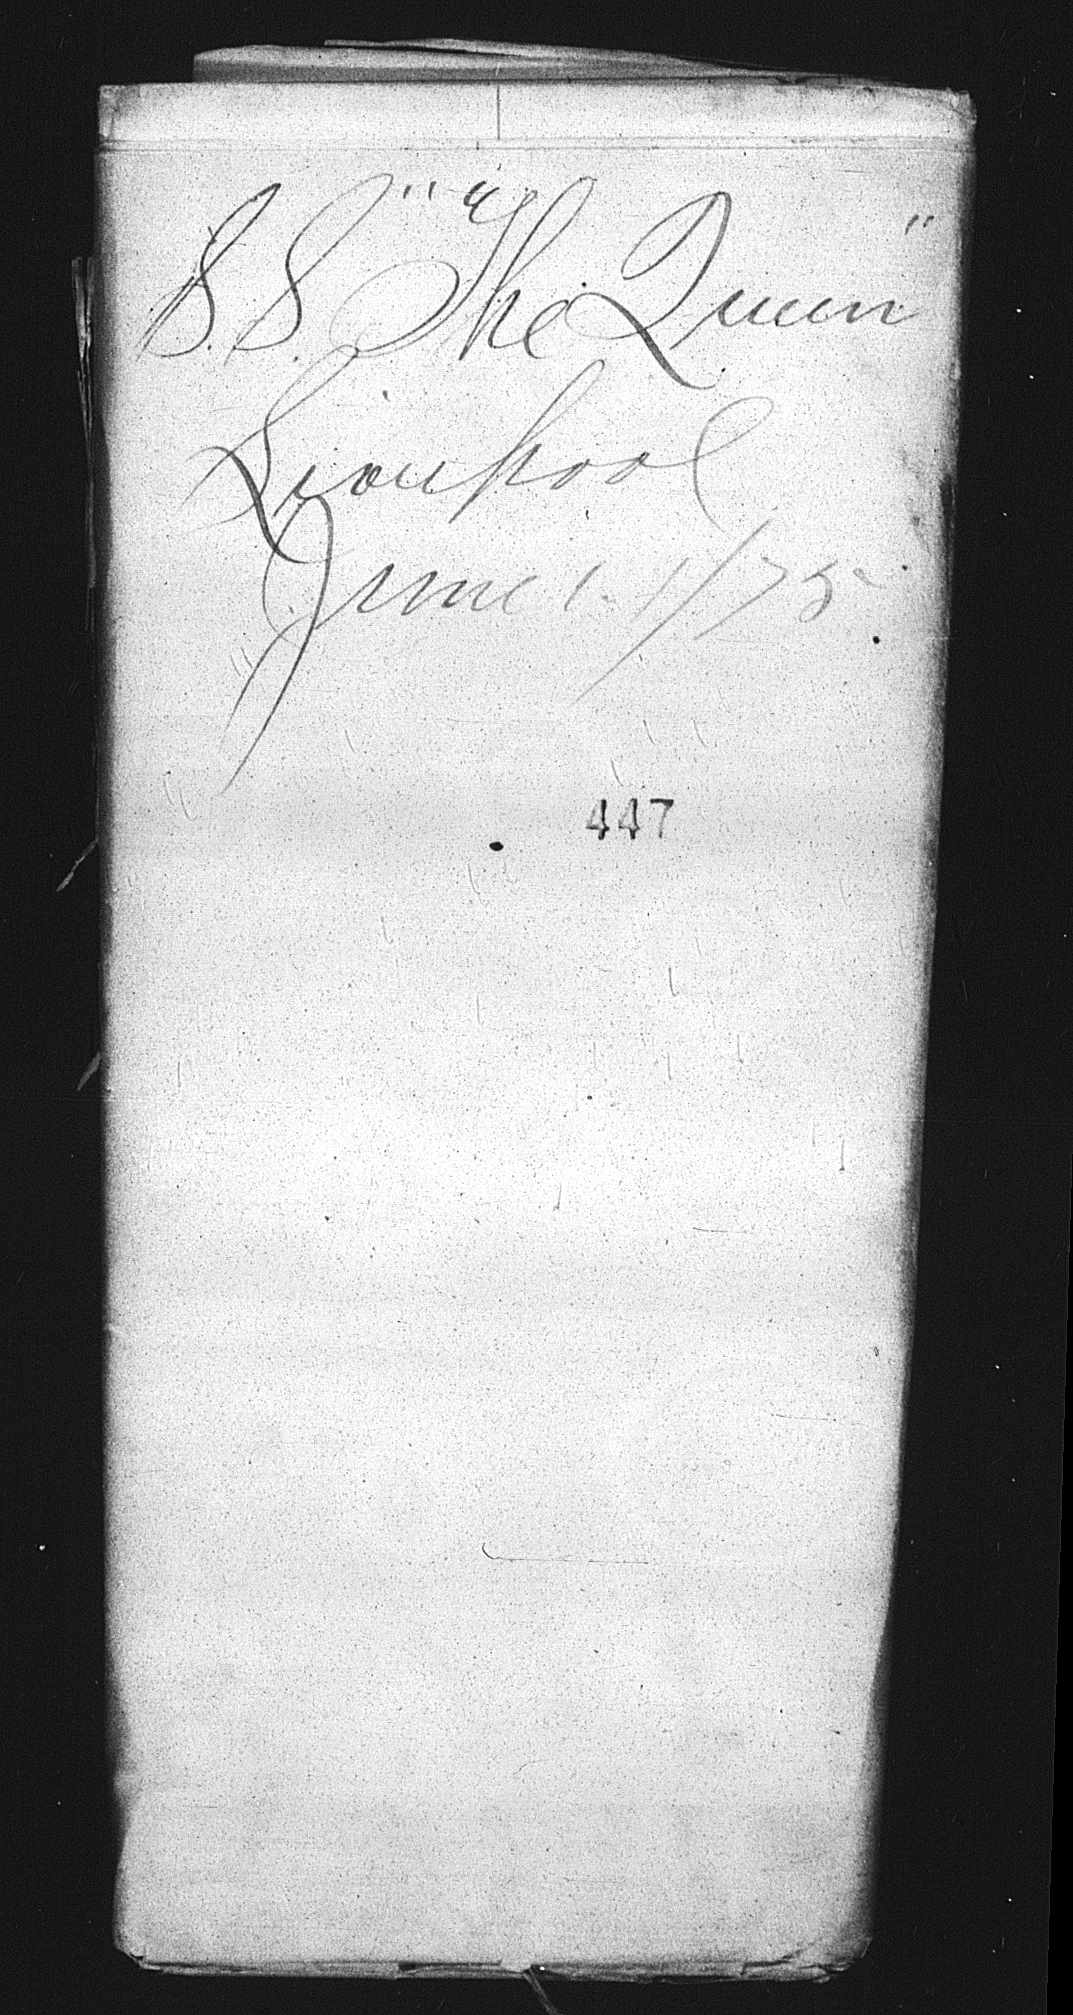 S.S. "The Queen"
Liverpool
June 1. 1/75
447